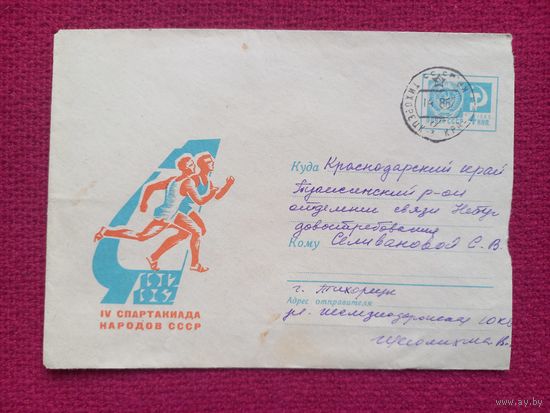 СССР
ПОЧТА СССР
4 КОП.
Куда Краснодарский край
Туапсинский р-он
отделение связи Небуг
довостребования
Кому Селивановой С. В.
г. Тихорецк
Адрес отправителя
ул.
IV СПАРТАКИАДА
НАРОДОВ СССР
www.ay.by